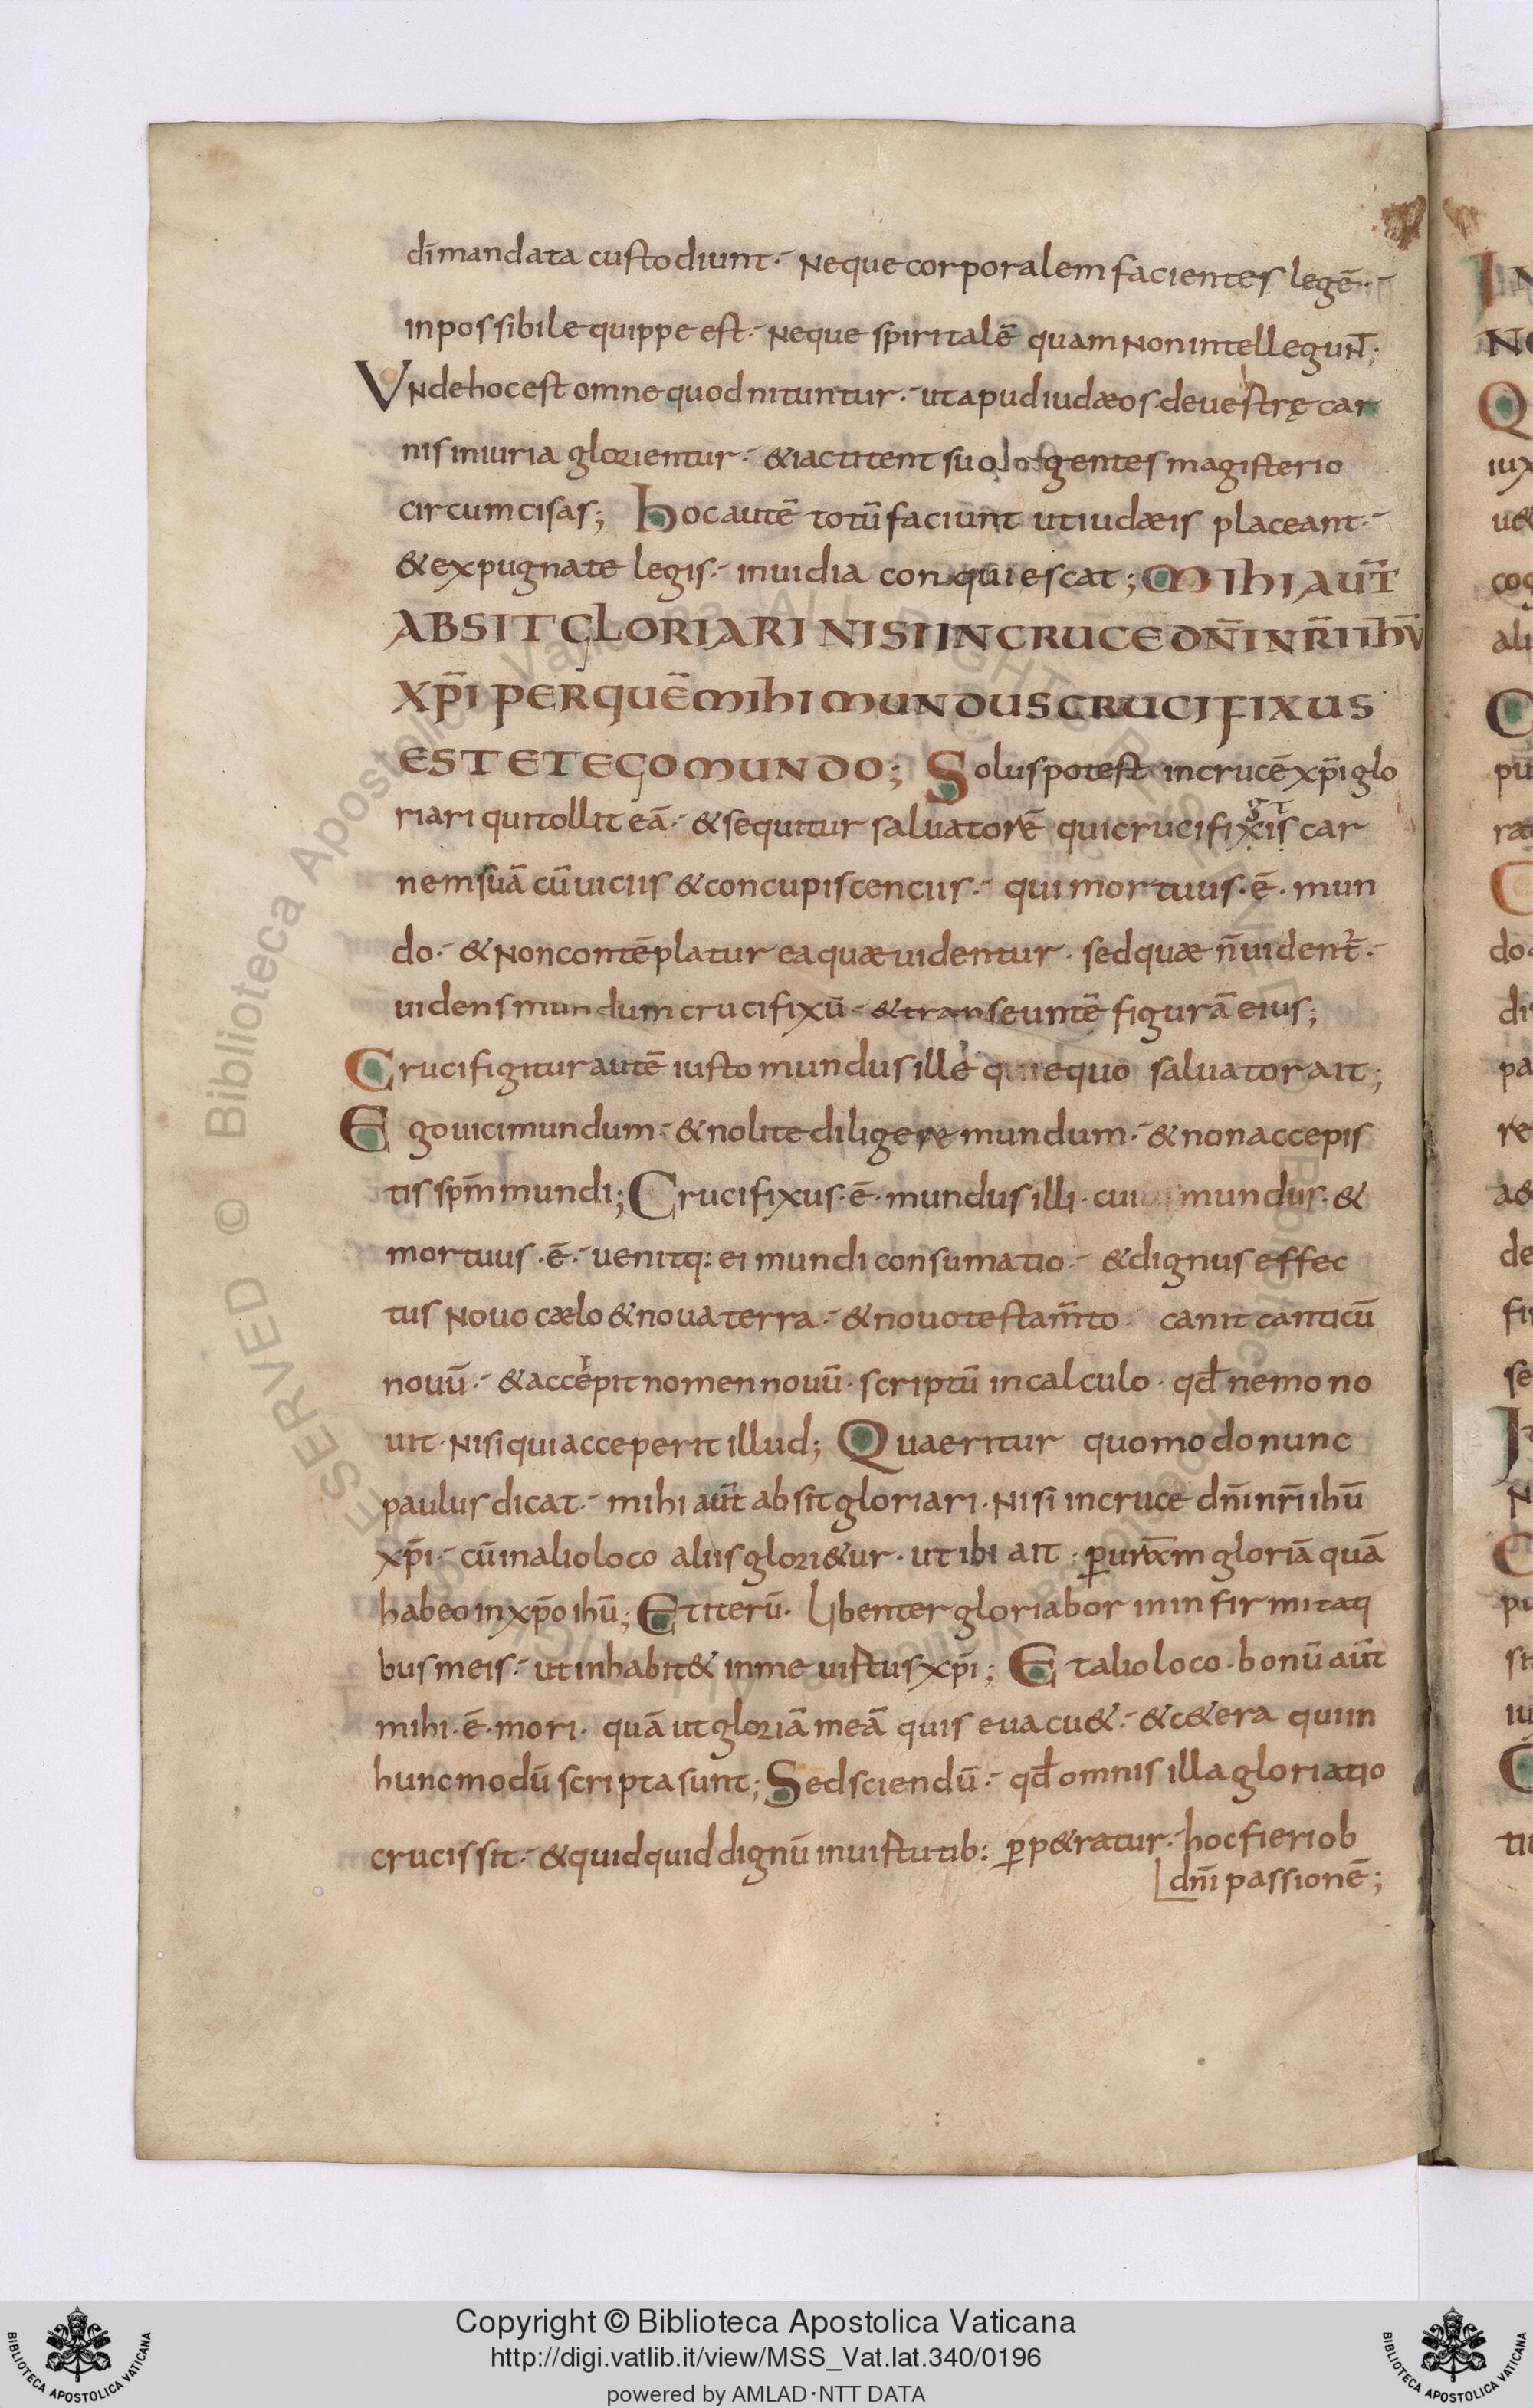 dī mandata custodiunt· neque corporalem facientes legē·
inpossibile quippe est· neque spiritalē quam non intellegunt̄;
Unde hoc est omne quod nituntur· ut apud iudæos de uestrę car
nis iniuria glorientur· & iactitent suo gentes magisterio
circumcisas; hoc autē totū faciunt ut iudæis placeant·
& expugnate legis· inuidia conquiescat; mihi aut̄
absit gloriari nisi in cruce dn̄i nr̄i ihū
xp̄i per quē mihi mundus crucifixus
est et ego mundo; Solus potest in crucē xp̄i glo
riari qui tollit eā· & sequitur saluatorē qui crucifixcis car
nem suā cū uiciis & concupiscenciis· qui mortuus· ē· mun
do· & non contēplatur ea quæ uidentur· sed quæ n̄ uident̄·
uidens mundum crucifixū· & transeuntē figurā eius;
Crucifigitur autē iusto mundus ille de quo saluator ait;
Ego uici mundum· & nolite diligere mundum· & non accepis
tis sp̄m mundi; Crucifixus· ē· mundus illi· cui mundus· &
mortuus· ē· uenitq: ei mundi consumatio· & dignus effec
tus nouo cælo & noua terra· & nouo testam̄to· canit canticū
nouū· & accepit nomen nouū· scriptū in calculo· qd̄ nemo no
uit· nisi qui acceperit illud; Quaeritur quomodo nunc
paulus dicat· mihi aūt absit gloriari· nisi in cruce dn̄i nr̄i ihū
xp̄i· cū in alio loco aliis glori&ur· ut ibi ait· p̱ ur̄am gloriā quā
habeo in xp̄o ihū; Et iterū· Libenter gloriabor in infirmitati
bus meis· ut inhabit& in me uirtus xp̄i; Et alio loco· bonū aūt
mihi· ē· mori· quā ut gloriā meā quis euacu&· & c&era qui in
hunc modū scripta sunt; Sed sciendū· qd̄ omnis illa gloriatio
crucis sit· & quidquid dignū in uirtutib: p̱p&ratur· hoc fieri ob
dn̄i passionē;
Copyright © Biblioteca Apostolica Vaticana
http://digi.vatlib.it/view/MSS_Vat.lat.340/0196
powered by AMLAD·NTT DATA
BIBLIOTECA APOSTOLICA VATICANA
BIBLIOTECA APOSTOLICA VATICANA